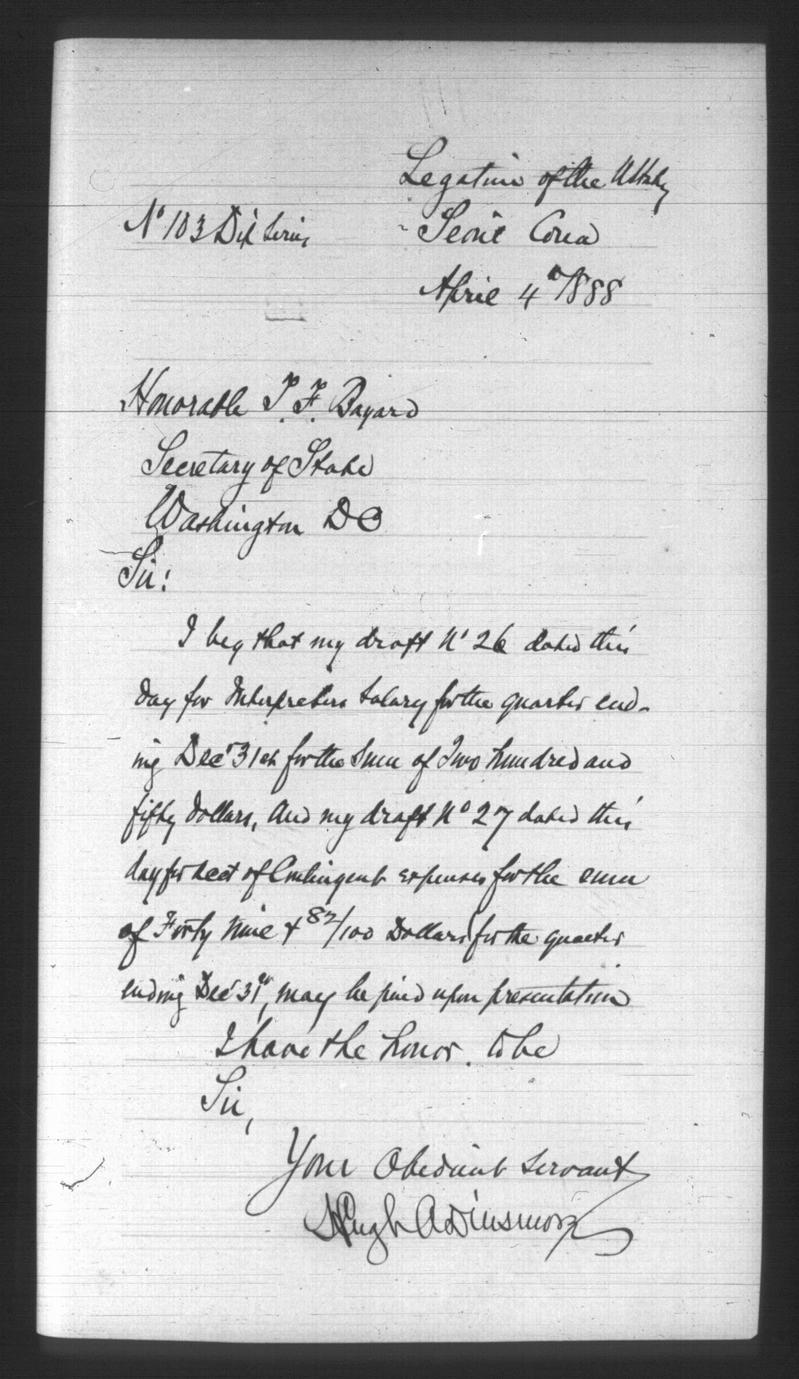 Legation of the U States
No 103 Dip Series
Seoul Corea
April 4th 1888
Honorable T. F. Bayard
Secretary of State
Washington DC
Sir:
I beg that my draft No 26 dated this
day for Interpreters Salary for the quarter end-
ing Dec 31st for the Sum of Two hundred and
fifty Dollars, And my draft No 27 dated this
day for acct of Contingent expenses for the sum
of Forty Nine & 82/100 Dollars for the quarter
ending Dec 31st, may be paid upon presentation
I have the honor to be
Sir,
Your Obedient Servant
Hugh A Dinsmore